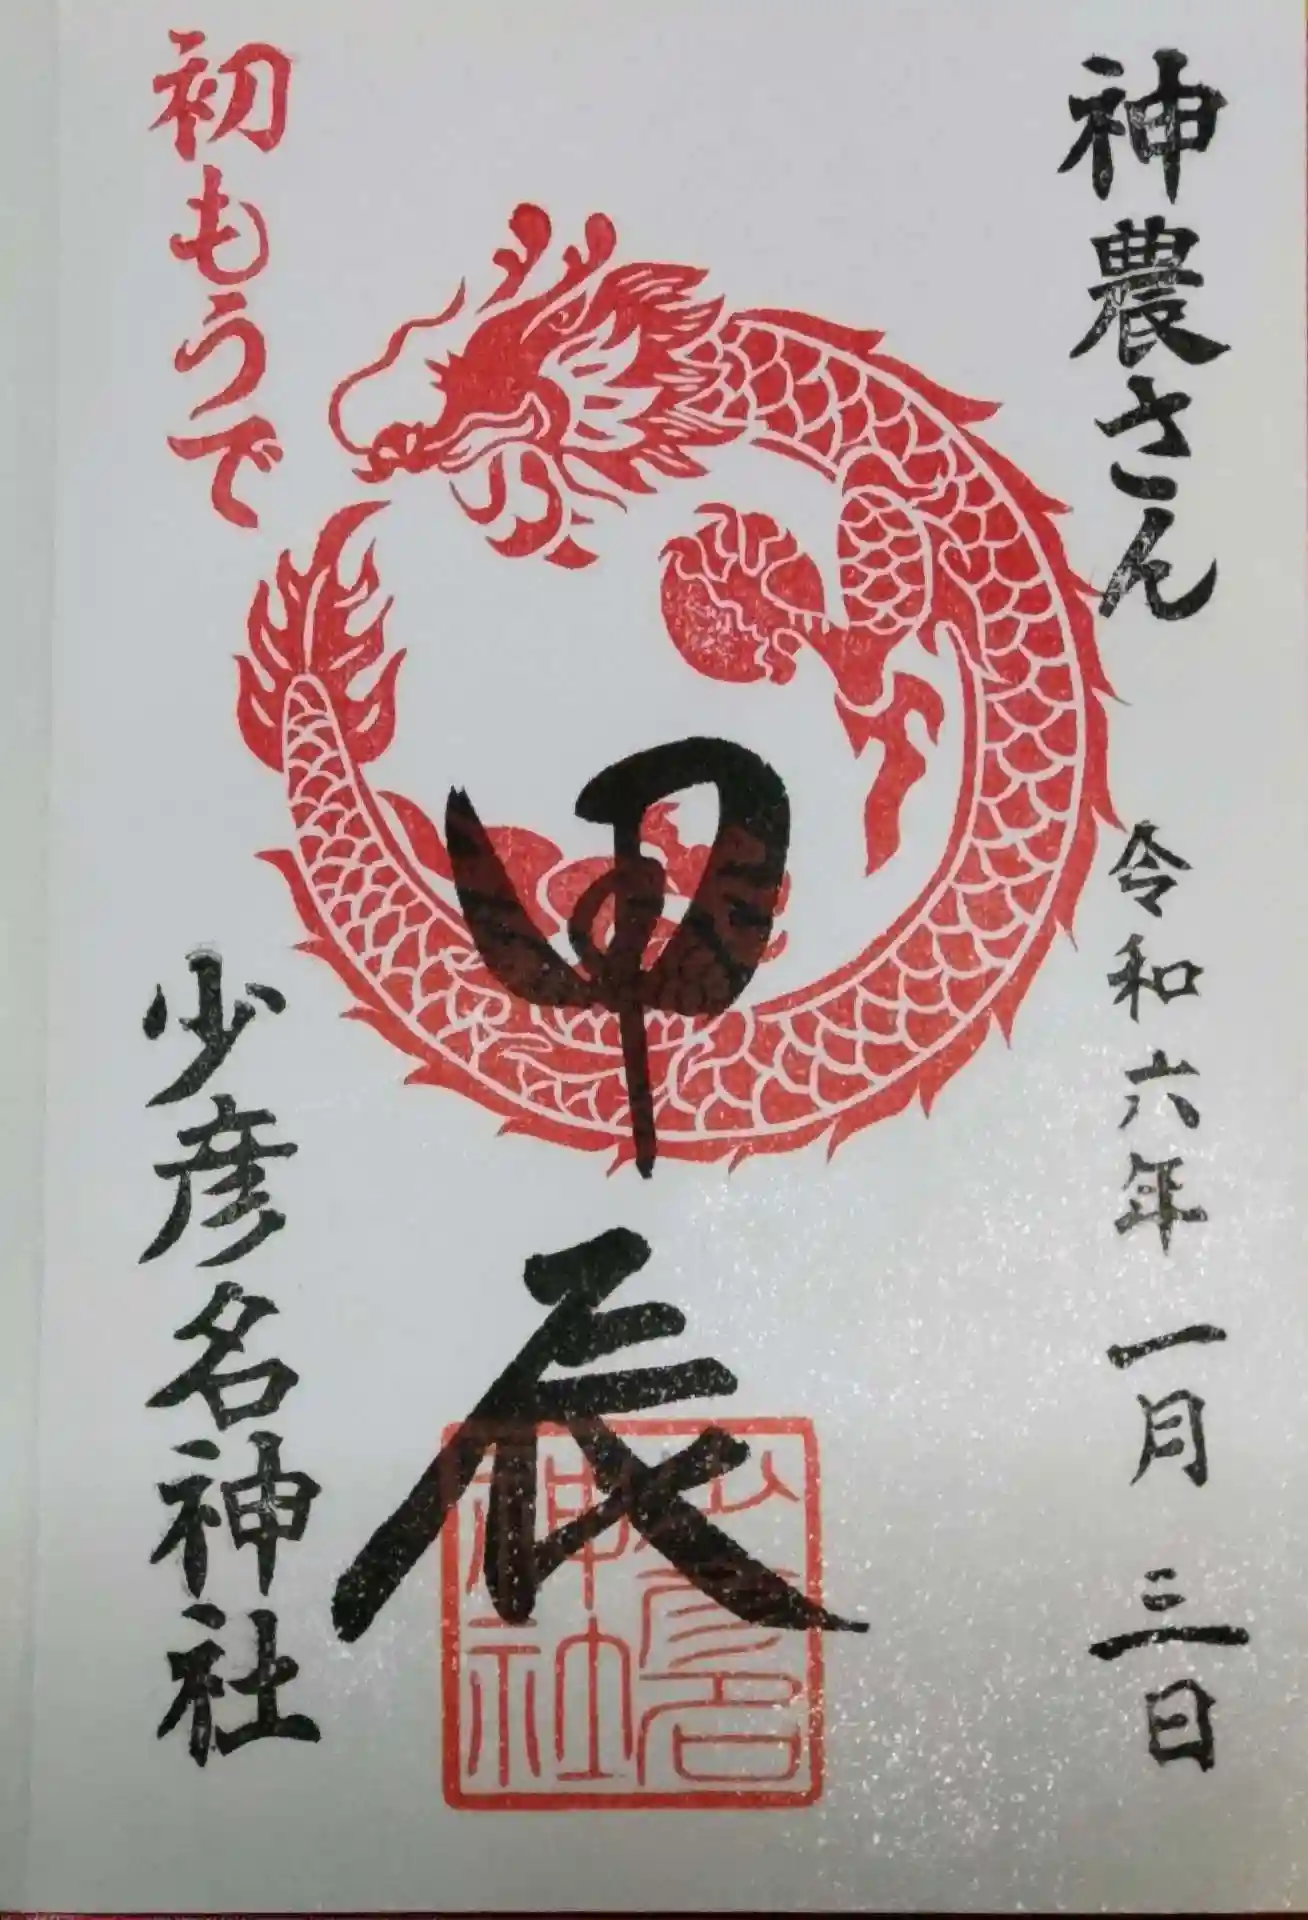 神農さん
令和六年一月三日
甲辰
少彦名神社
初もうで
少彦名神社